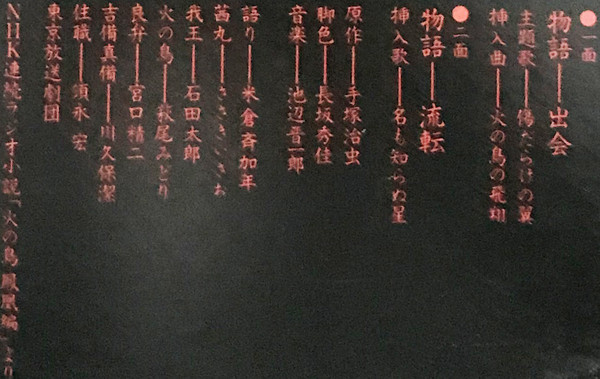 ●一面
物語――出会
主題歌――傷だらけの翼
挿入曲――火の鳥の飛翔
●二面
物語――流転
挿入歌――名も知らぬ星
原作――手塚治虫
脚色――長坂秀佳
音楽――池辺晋一郎
語り――米倉斉加年
茜丸――ささきいさお
我王――石田太郎
火の鳥――萩尾みどり
良弁――宮口精二
吉備真備――川久保潔
住職――須永宏
東京放送劇団
NHK連続ラジオ小説「火の鳥鳳凰編」より